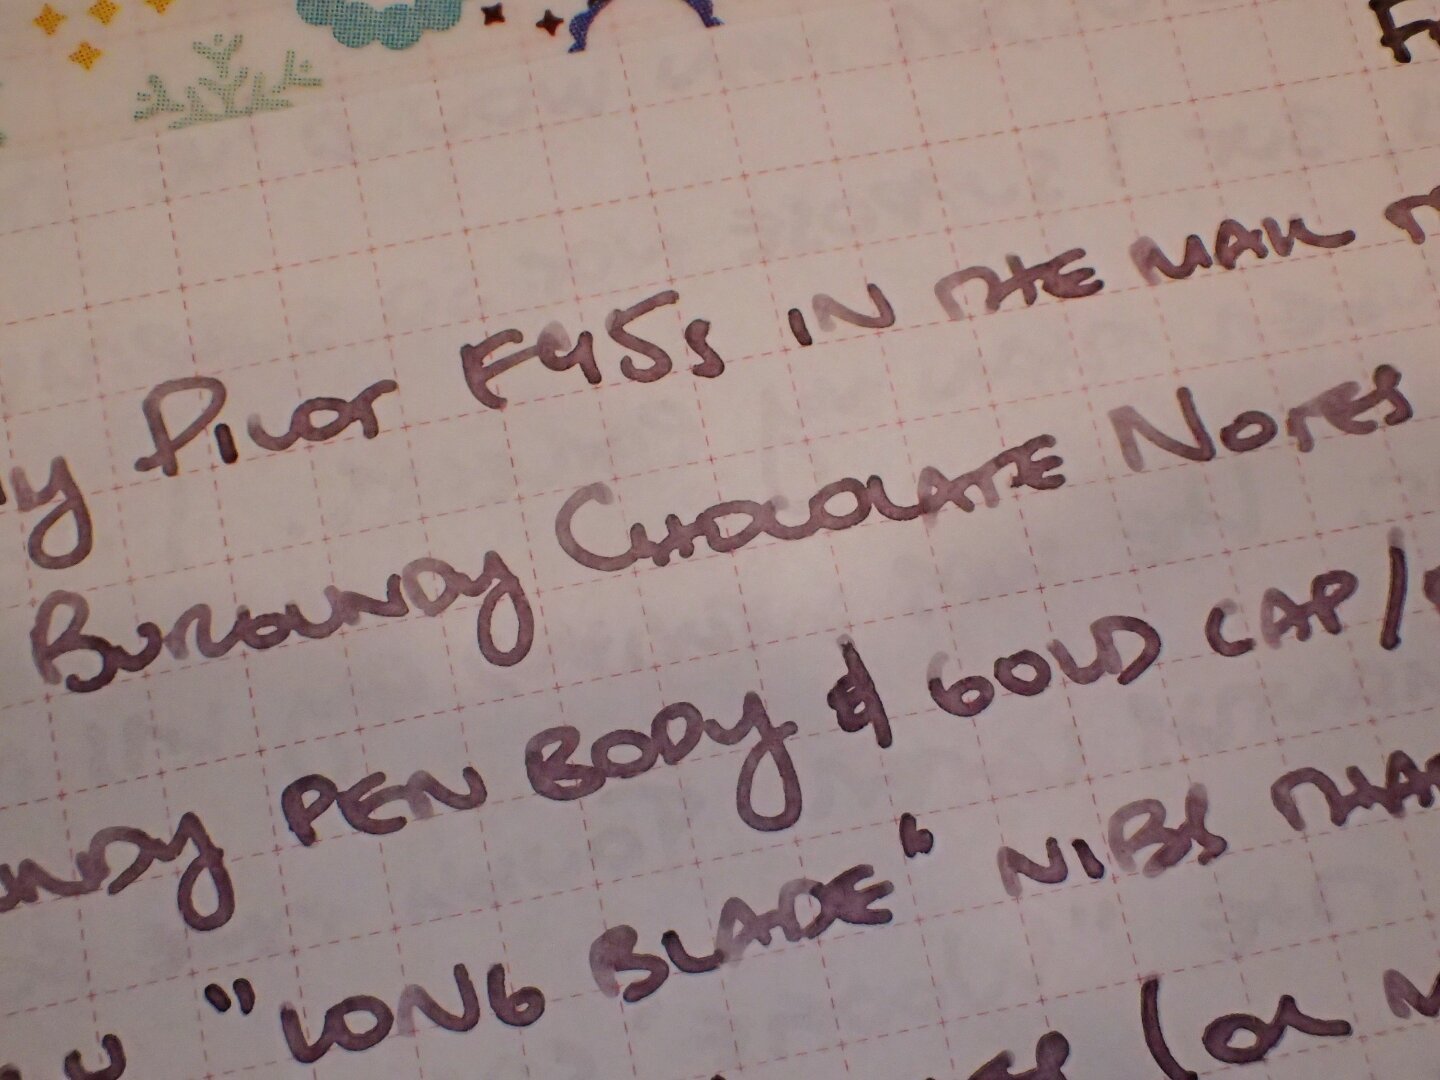 Pilot F45s in the mail
Burgundy Chocolate Notes
pen body & gold cap/
"long blade" nibs
(or